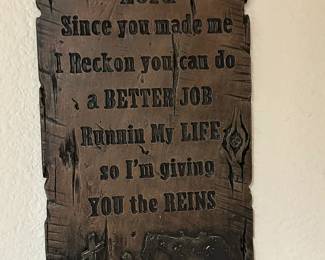 Lord
Since you made me
I Reckon you can do
a BETTER JOB
Runnin My LIFE
so I'm giving
YOU the REINS